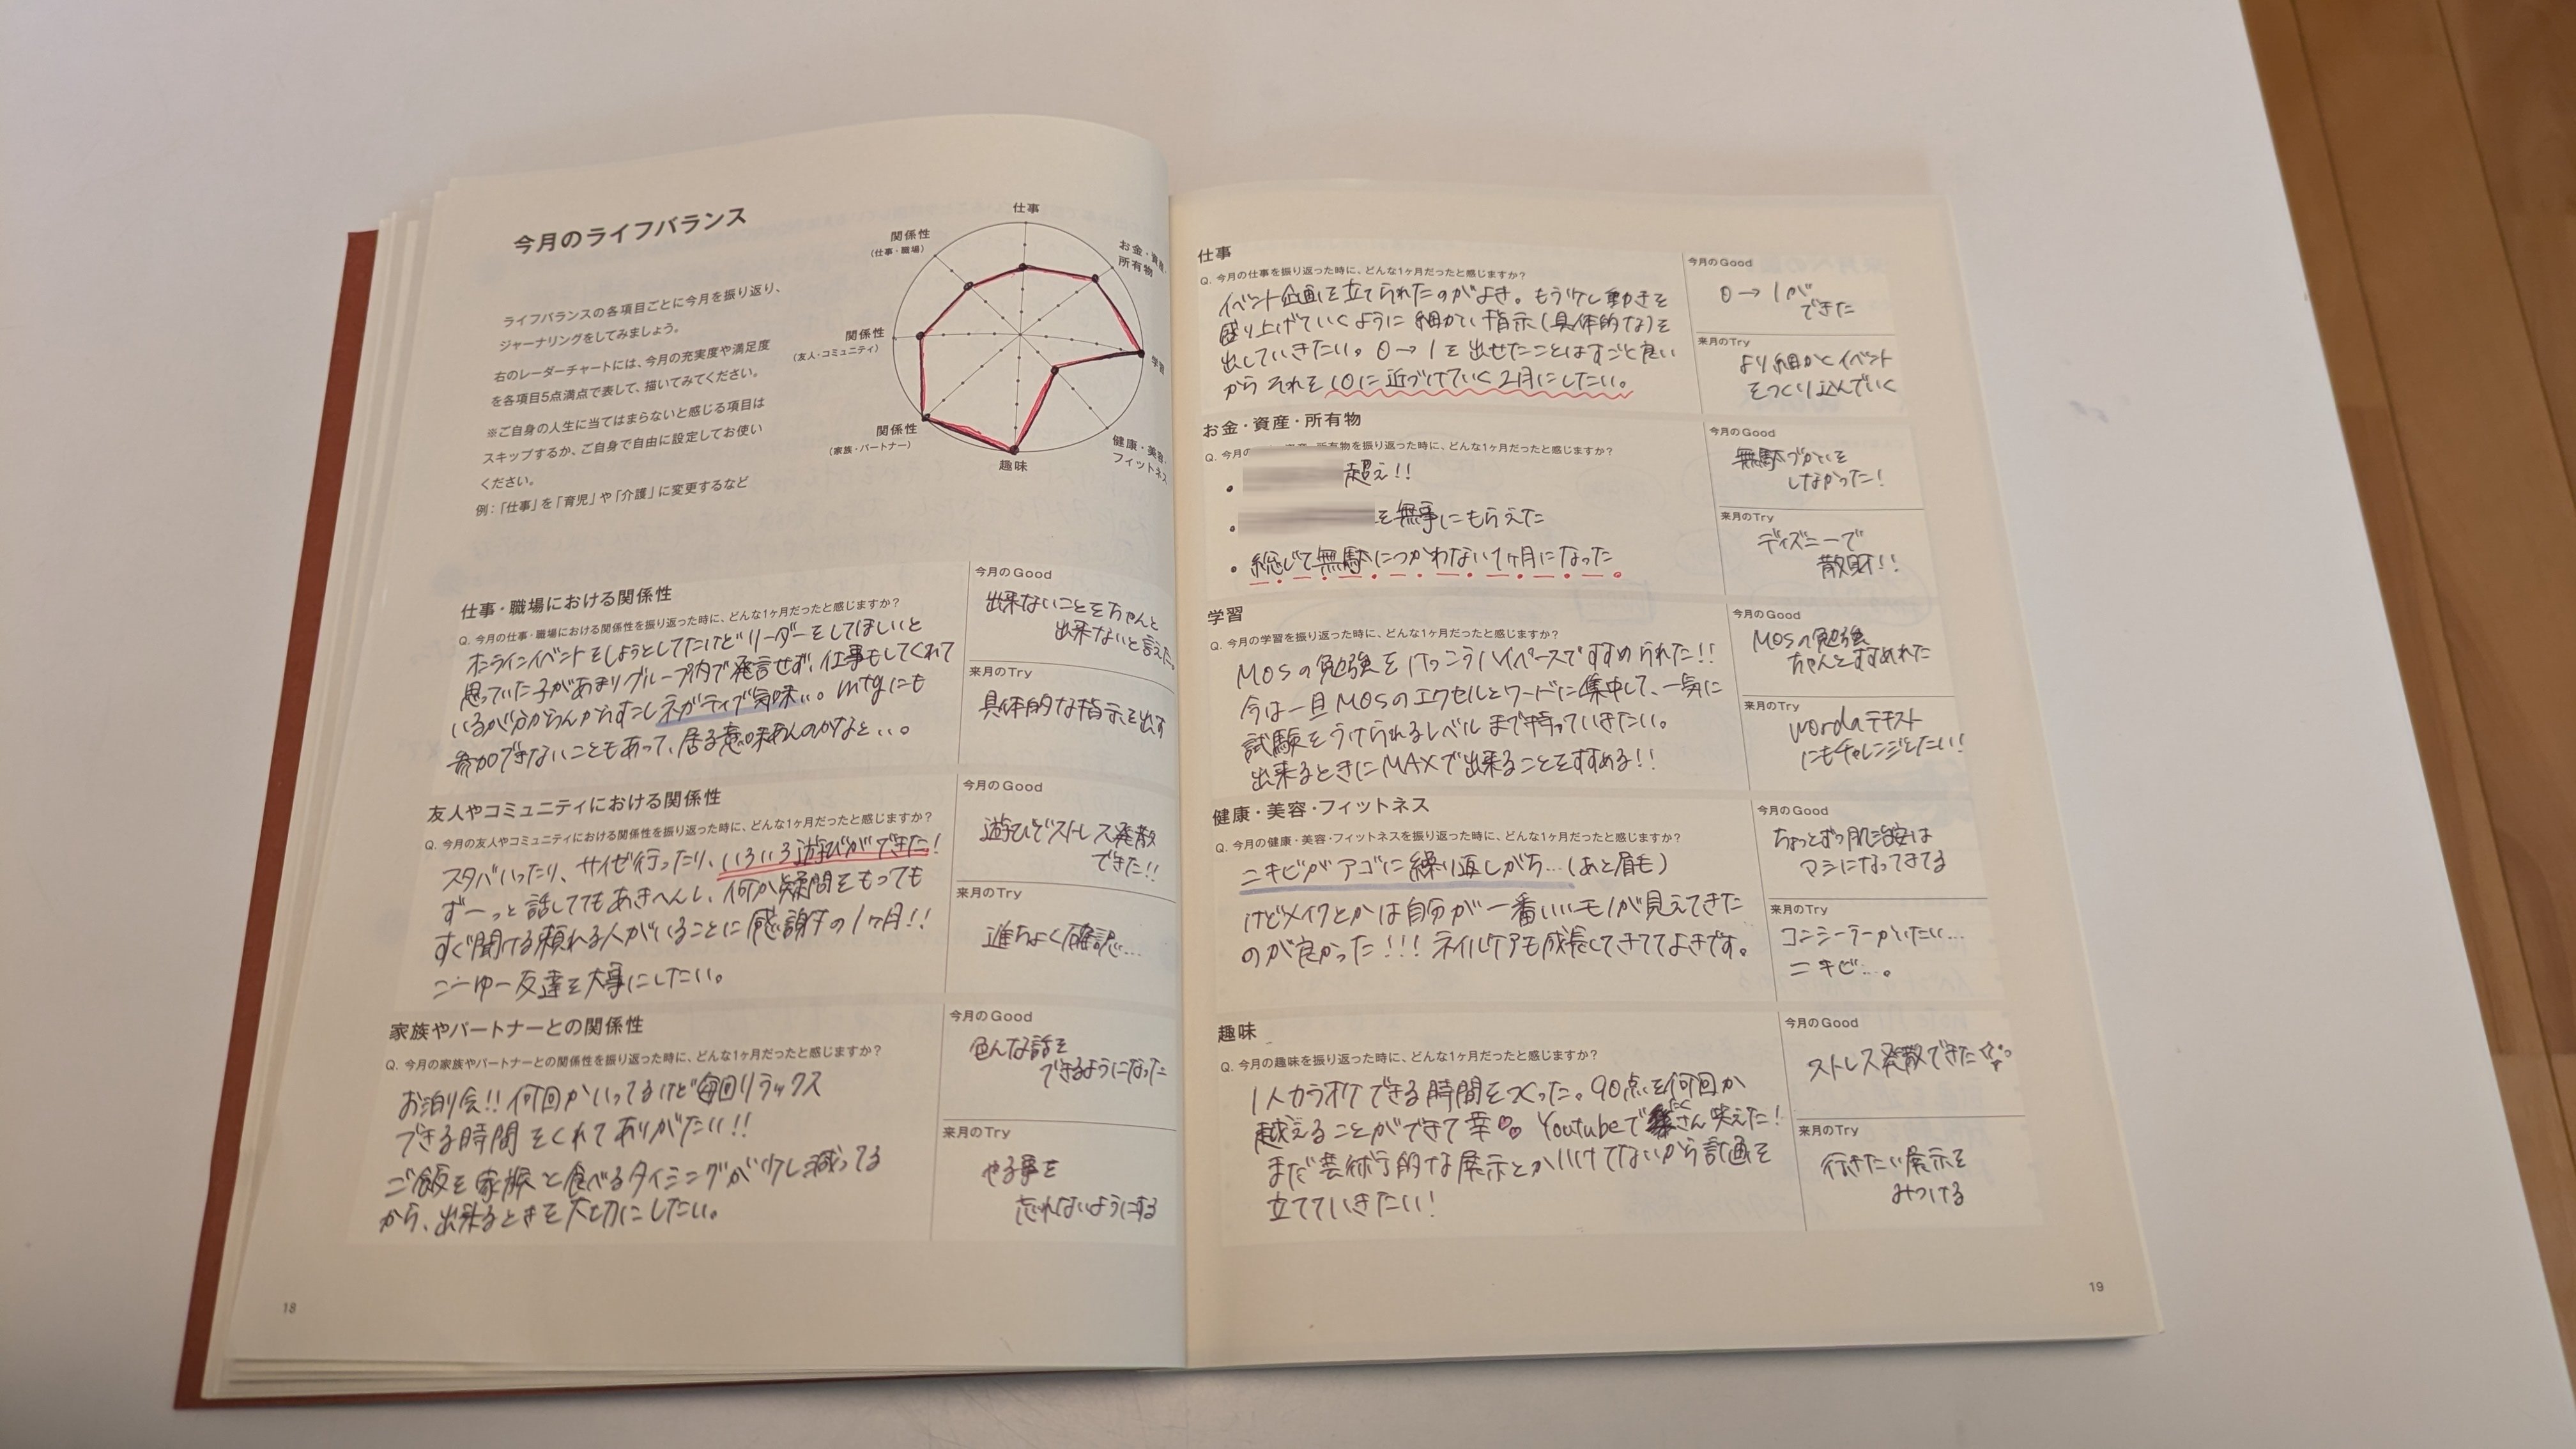 今月のライフバランス
ライフバランスの各項目ごとに今月を振り返り、
ジャーナリングをしてみましょう。
右のレーダーチャートには、今月の充実度や満足度
を各項目5点満点で表して、描いてみてください。
※ご自身の人生に当てはまらないと感じる項目は
スキップするか、ご自身で自由に設定してお使い
ください。
例:「仕事」を「育児」や「介護」に変更するなど
仕事
お金・資産・
所有物
学習
健康・美容・
フィットネス
趣味
関係性
(家族・パートナー)
関係性
(友人・コミュニティ)
関係性
(仕事・職場)
仕事・職場における関係性
Q. 今月の仕事・職場における関係性を振り返った時に、どんな1ヶ月だったと感じますか?
オンラインイベントをしようとしてたけどリーダーをしてほしいと
思っていた子があまりグループ内で発言せず、仕事もしてくれて
いるが分からんからすこしネガティブ気味...。mtgにも
参加できないこともあって、居る意味あんのかなと...。
今月のGood
出来ないことをちゃんと
出来ないと言えた。
来月のTry
具体的な指示を出す
友人やコミュニティにおける関係性
Q. 今月の友人やコミュニティにおける関係性を振り返った時に、どんな1ヶ月だったと感じますか?
スタバいったり、サイゼ行ったり、いろいろ遊びができた!
ずーっと話しててもあきへんし、何か疑問をもっても
すぐ聞ける頼れる人がいることに感謝の1ヶ月!!
こーゆー友達を大事にしたい。
今月のGood
遊びでストレス発散
できた!!
来月のTry
進ちょく確認...
家族やパートナーとの関係性
Q. 今月の家族やパートナーとの関係性を振り返った時に、どんな1ヶ月だったと感じますか?
お泊り会!! 何回かいってるけど毎回リラックス
できる時間をくれてありがたい!!
ご飯を家族と食べるタイミングが少し減ってる
から、出来るときを大切にしたい。
今月のGood
色んな話を
できるようになった
来月のTry
やる事を
忘れないようにする
18
仕事
Q. 今月の仕事を振り返った時に、どんな1ヶ月だったと感じますか?
イベント企画を立てられたのがよき。もう少し動きを
盛り上げていくように細かい指示(具体的な)を
出していきたい。0→1を出せたことはすごく良い
からそれを10に近づけていく2月にしたい。
今月のGood
0→1が
できた
来月のTry
より細かくイベント
をつくり込んでいく
お金・資産・所有物
Q. 今月の 資産・所有物を振り返った時に、どんな1ヶ月だったと感じますか?
・ 超え!!
・ を無事にもらえた
・総じて無駄につかわない1ヶ月になった
今月のGood
無駄づかいを
しなかった!
来月のTry
ディズニーで
散財!!
学習
Q. 今月の学習を振り返った時に、どんな1ヶ月だったと感じますか?
MOSの勉強をけっこうハイペースですすめられた!!
今は一旦MOSのエクセルとワードに集中して、一気に
試験をうけられるレベルまで持っていきたい。
出来るときにMAXで出来ることをすすめる!!
今月のGood
MOSの勉強
ちゃんとすすめれた
来月のTry
wordのテキスト
にもチャレンジしたい!
健康・美容・フィットネス
Q. 今月の健康・美容・フィットネスを振り返った時に、どんな1ヶ月だったと感じますか?
ニキビがアゴに繰り返しがち...(あと眉毛)
けどメイクとかは自分が一番いいモノが見えてきた
のが良かった!!! ネイルケアも成長してきててよきです。
今月のGood
ちょっとずつ肌治安は
マシになってきてる
来月のTry
コンシーラーかいたい...
ニキビ...。
趣味
Q. 今月の趣味を振り返った時に、どんな1ヶ月だったと感じますか?
1人カラオケできる時間をつくった。90点を何回か
越えることができて幸♡♡ Youtubeでたくさん映えた!
まだ芸術的な展示とかいけてないから計画を
立てていきたい!
今月のGood
ストレス発散できた
来月のTry
行きたい展示を
みつける
19